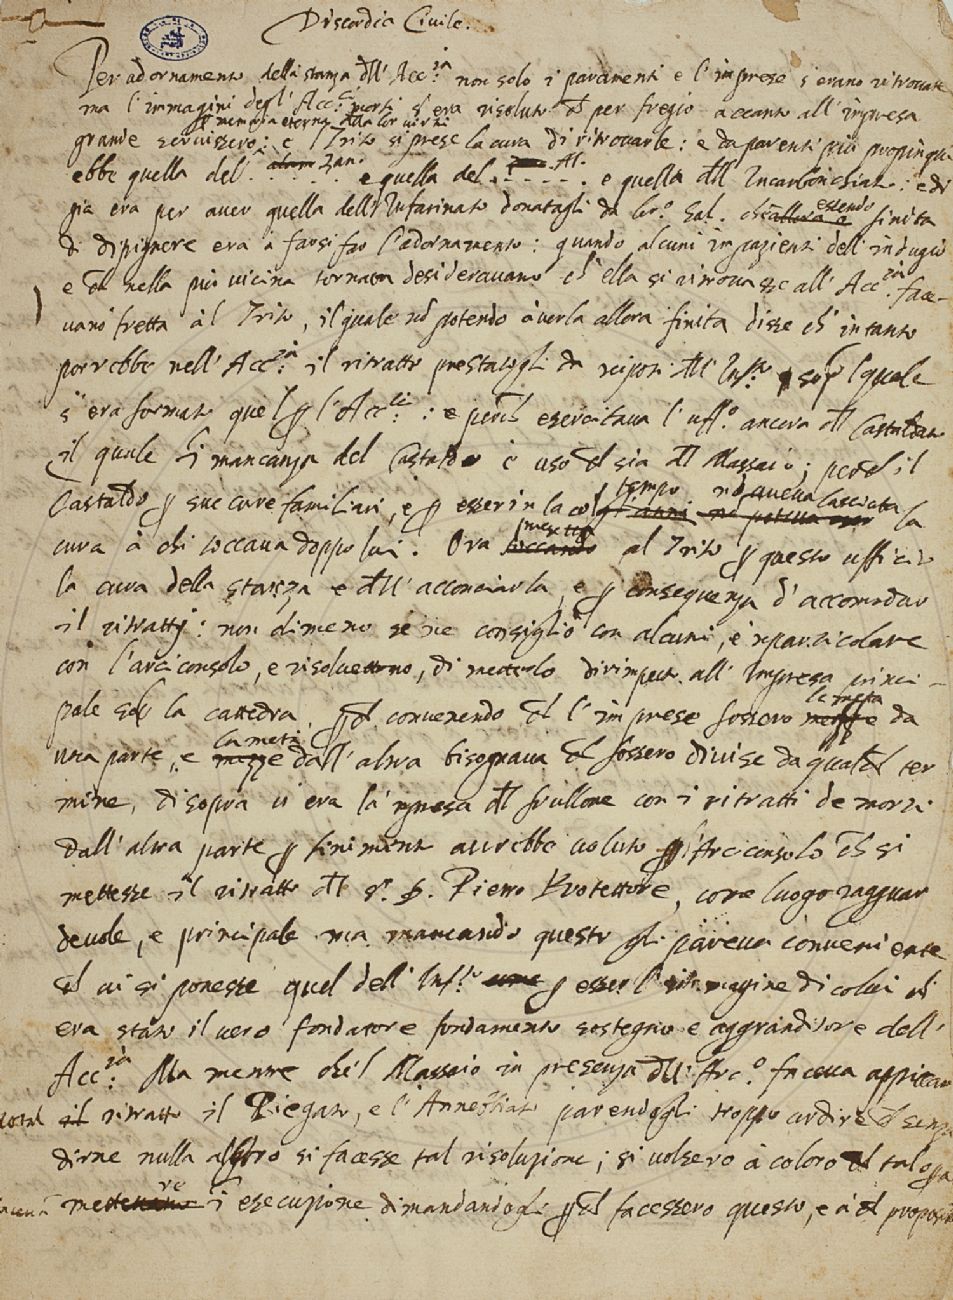 Discordia Civile.
Per adornamento della stanza dll' Acc:ia non solo i paramenti e l'imprese s'erano ritrovate
ma l'immagini degl' Acc:ci morti s'era risoluto ch per fregio accanto all' impresa
a memoria eterna della lor virtù
grande servissero: e 'l Trito si prese la cura di ritrovarle: e da parenti più propinqui
ebbe quella del Zan. e quella del . . . . . e quella dll' Incarbonchiato: e di
già era per aver quella dell' Infarinato donatagli da Sal. essendo finita
di dipignere era a farsi far l'adornamento: quando alcuni impazienti dell' indugio
e ch nella più vicina tornata desideravano ch' ella si ritrovasse all' Acc:ia face-
vano fretta al Trito, il quale nō potendo averla allora finita disse ch' intanto
porrebbe nell' Acc:ia il ritratto prestatogli da nipoti dll' Inf:to sopra 'l quale
s'era formato quel p l'Acc:ci: e perch esercitava l'uff:o ancora dl Castaldo
il quale ī mancanza del Castaldo è uso ch sia dl Massaio; perch il
Castaldo p sue cure familiari, e p esser in la col tempo nō aveva lasciata la
cura à chi toccava doppo lui. Ora al Trito p questo ufficio
la cura della stanza e dll' acconciarla, e p conseguenza d'accomodar
il ritratti: non dimeno se ne consigliò con alcuni, e 'n particolare
con l'arciconsolo, e risolvettono, di metterlo dirimpetto all' Impresa princi-
pale sopra la cattedra. pch convenendo ch l'imprese fossero la metà da
una parte, e la metà dall' altra bisognava ch fossero divise da qualch ter
mine, di sopra v'era la 'mpresa dl frullone con i ritratti de morti
dall' altra parte p finimento avrebbe voluto l'Arciconsolo ch si
mettesse il ritratto dl S. D. Pietro Protettore, come luogo ragguar
devole, e principale ma mancando questo gli pareva conveniente
ch vi si ponesse quel dell' Inf:to p esser l'immagine di colui ch
era stato il vero fondatore fondamento sostegno e aggranditore dell'
Acc:ia Ma mentre che 'l Massaio in presenza dll' Arc:o faceva appiccar
il ritratto il Piegato, e l'Annebbiato parendogli troppo ardire ch senza
dirne nulla altro si facesse tal risoluzione; si volsero à coloro ch tal opra
mettere ī esecuzione dimandandogli pch facessero questo, e à ch proposito